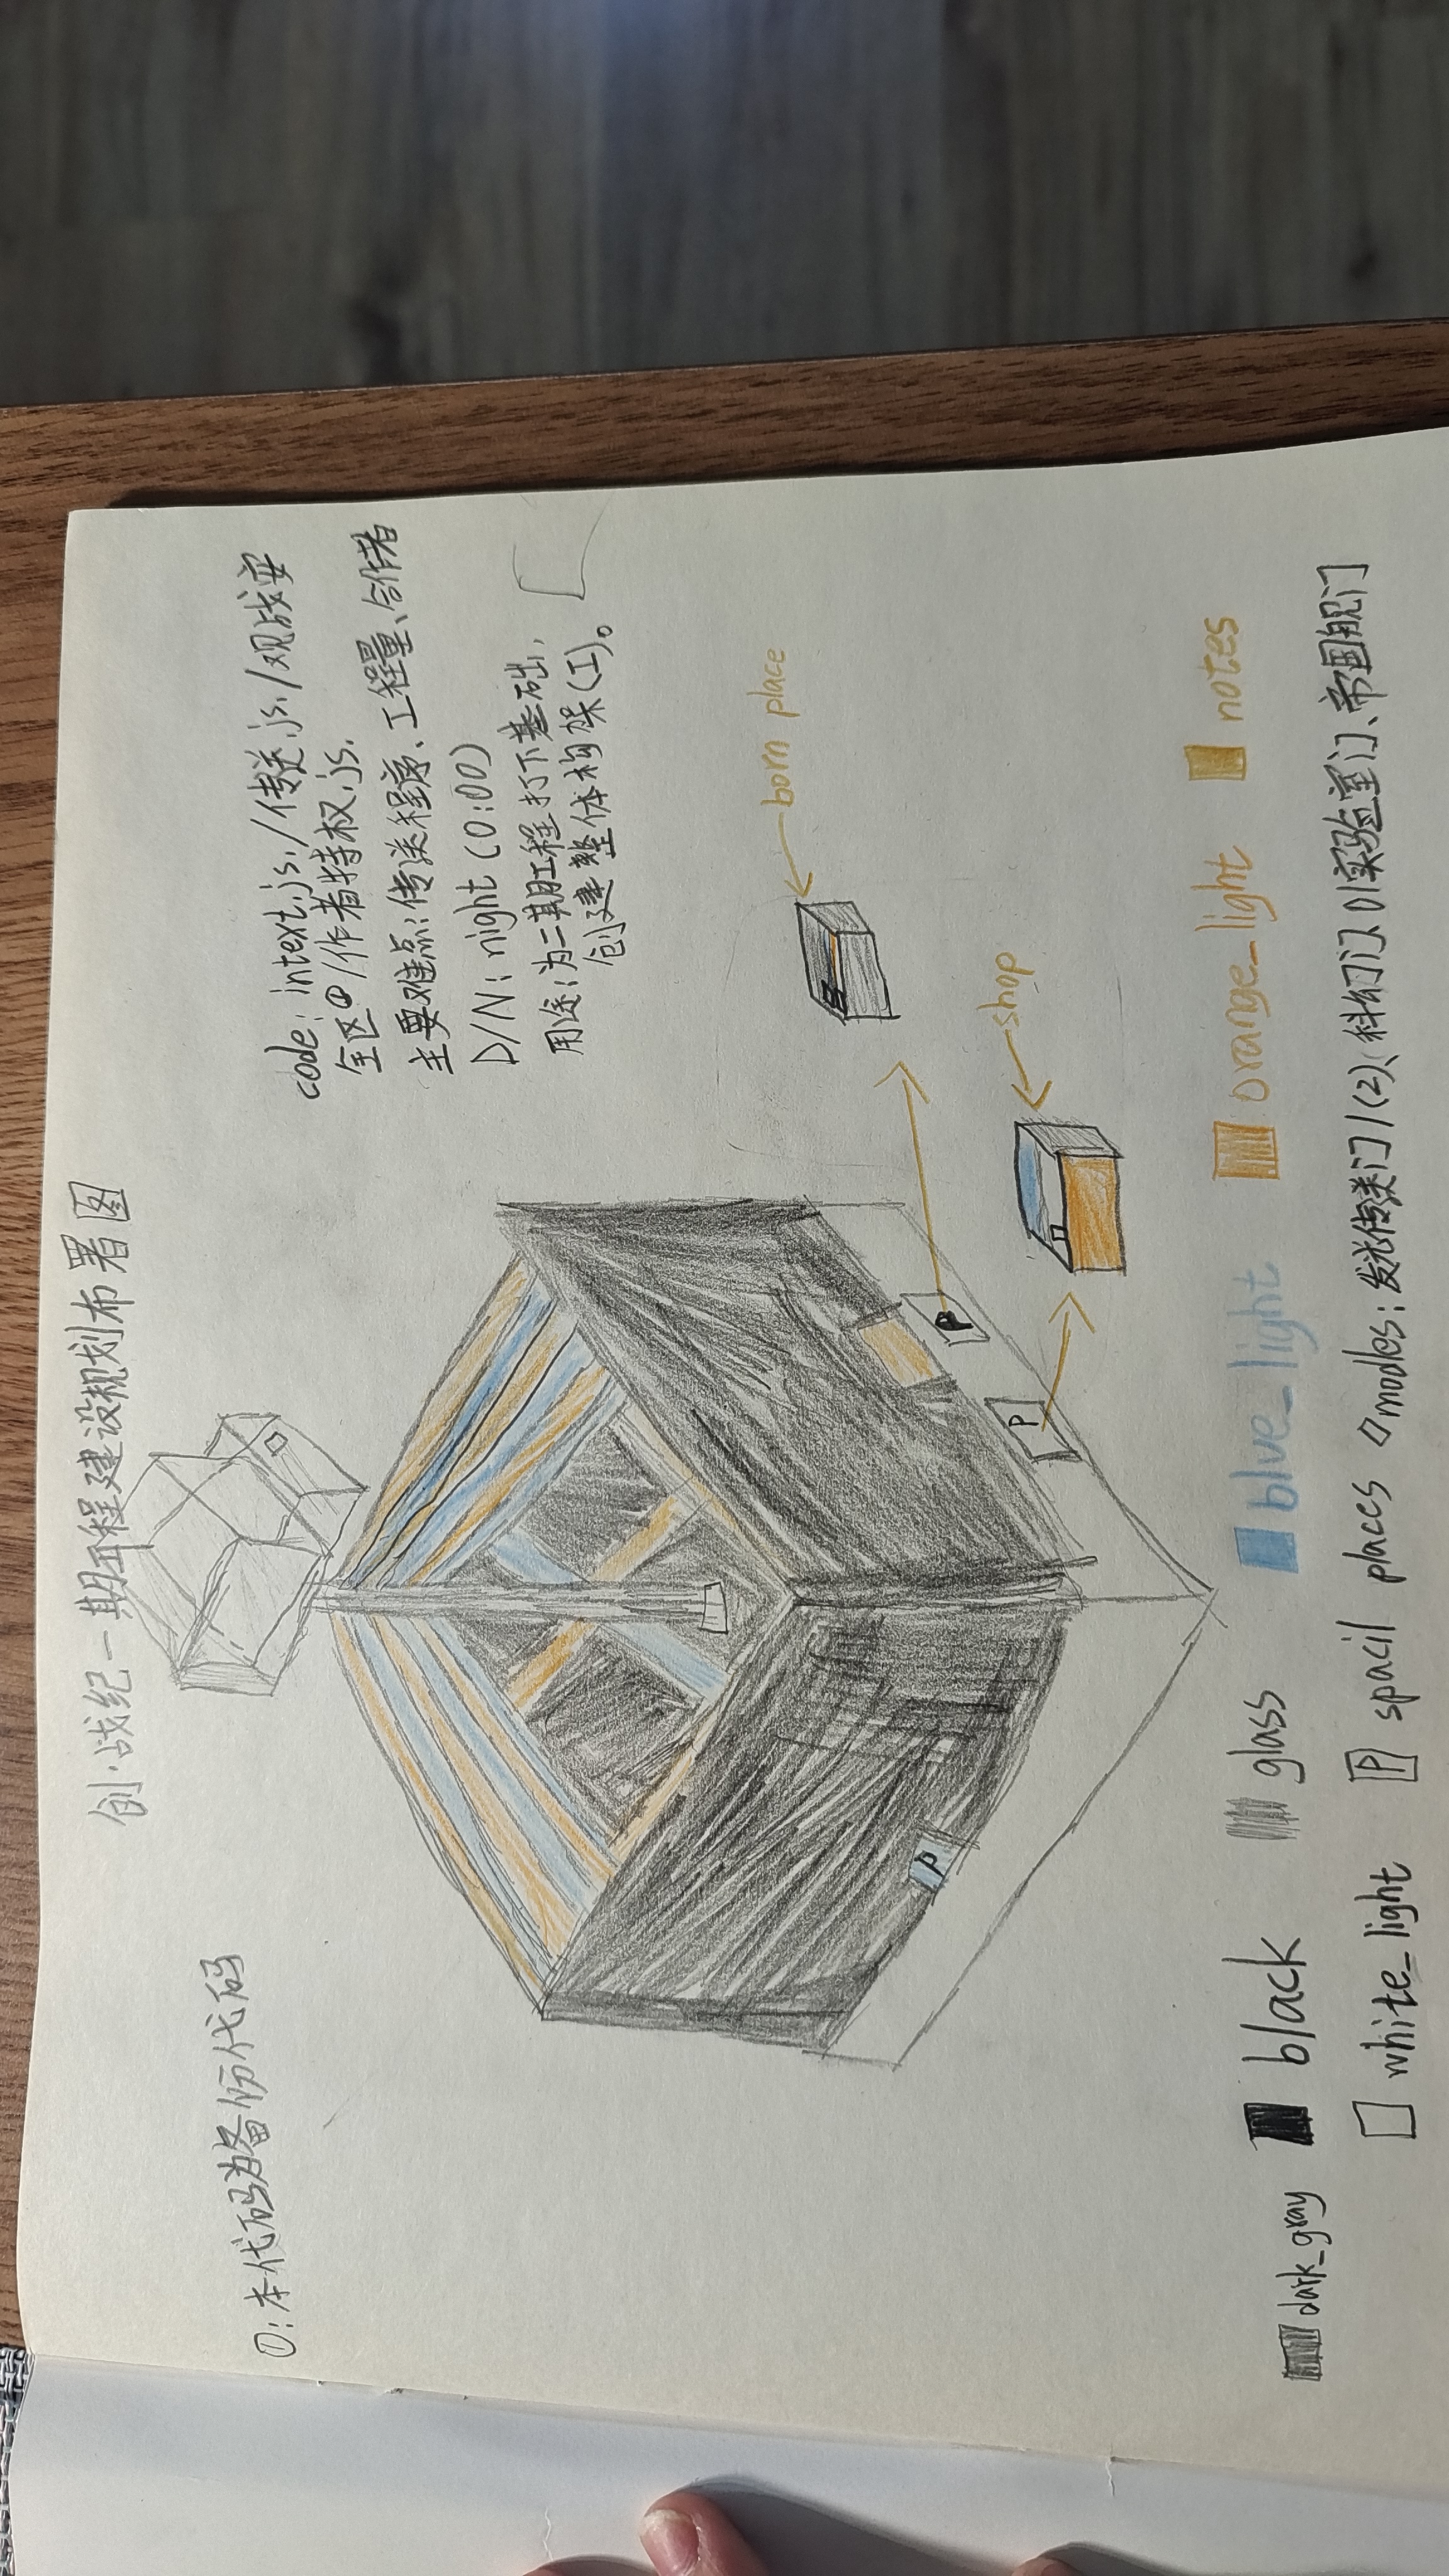 创·战纪一期工程建设规划布署图
①:本代码为备份代码
code:intext.js/传送.js/观战安
全区①/作者特权.js.
主要难点:传送程序、工程量、合作者
D/N:night(0:00)
用途:为二期工程打下基础,
创建整体构架(工)。
born place
shop
P
P
P
dark_gray black glass blue_light orange_light notes
white_light P spacil places modles:发光传送门1(2)、科幻门、01实验室门、帝国舰门